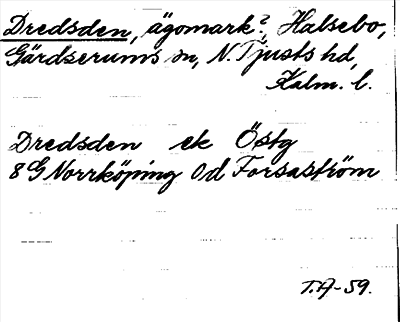 Dredsden, ägomark?, Halsebo,
Gärdserums sn, N. Tjusts hd,
Kalm. l.
Dredsden ek Östg
8G Norrköping Od Forsaström
T.A-59.